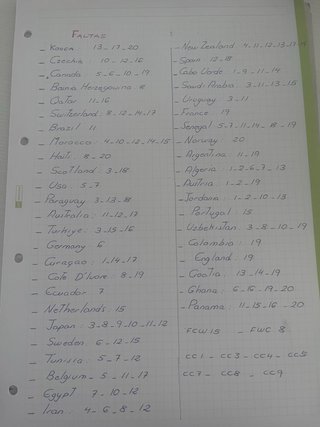 FALTAS
- Korea: 13-17-20
- Czechia: 10-12-16
- Canada: 5-6-10-19
- Bosnia Herzegovina 8
- Qatar 11-16
- Switzerland: 8-12-14-17
- Brazil 11
- Morocco: 4-10-12-14-15
- Haiti: 8-20
- Scotland: 3-18
- Usa: 5-7
- Paraguay: 3-13-18
- Australia: 11-12-17
- Turkiye: 3-15-16
- Germany 6
- Curaçao: 1-14-17
- Cote D'Ivore: 8-19
- Ecuador 7
- Netherlands: 15
- Japan: 3-8-9-10-11-12
- Sweden 6-12-15
- Tunisia: 5-7-12
- Belgium- 5-11-17
- Egypt 7-10-12
- Iran: 4-6-8-12
- New Zealand 4-11-12-13-17
- Spain: 12-18
- Cabo Verde: 1-9-11-14
- Saudi Arabia: 3-11-13-15
- Uruguay: 3-11
- France: 19
- Senegal: 5-7-11-14-18-19
- Norway: 20
- Argentina: 11-19
- Algeria: 1-2-6-7-13
- Austria: 1-2-19
- Jordania: 1-2-10-13
- Portugal: 15
- Uzbekistan: 3-8-10-19
- Colombia: 19
- England: 19
- Croatia: 13-14-19
- Ghana: 6-16-19-20
- Panama: 11-15-16-20
FCW 15 - FWC 8
CC1 - CC3 - CC4 - CC5
CC7 - CC8 - CC9